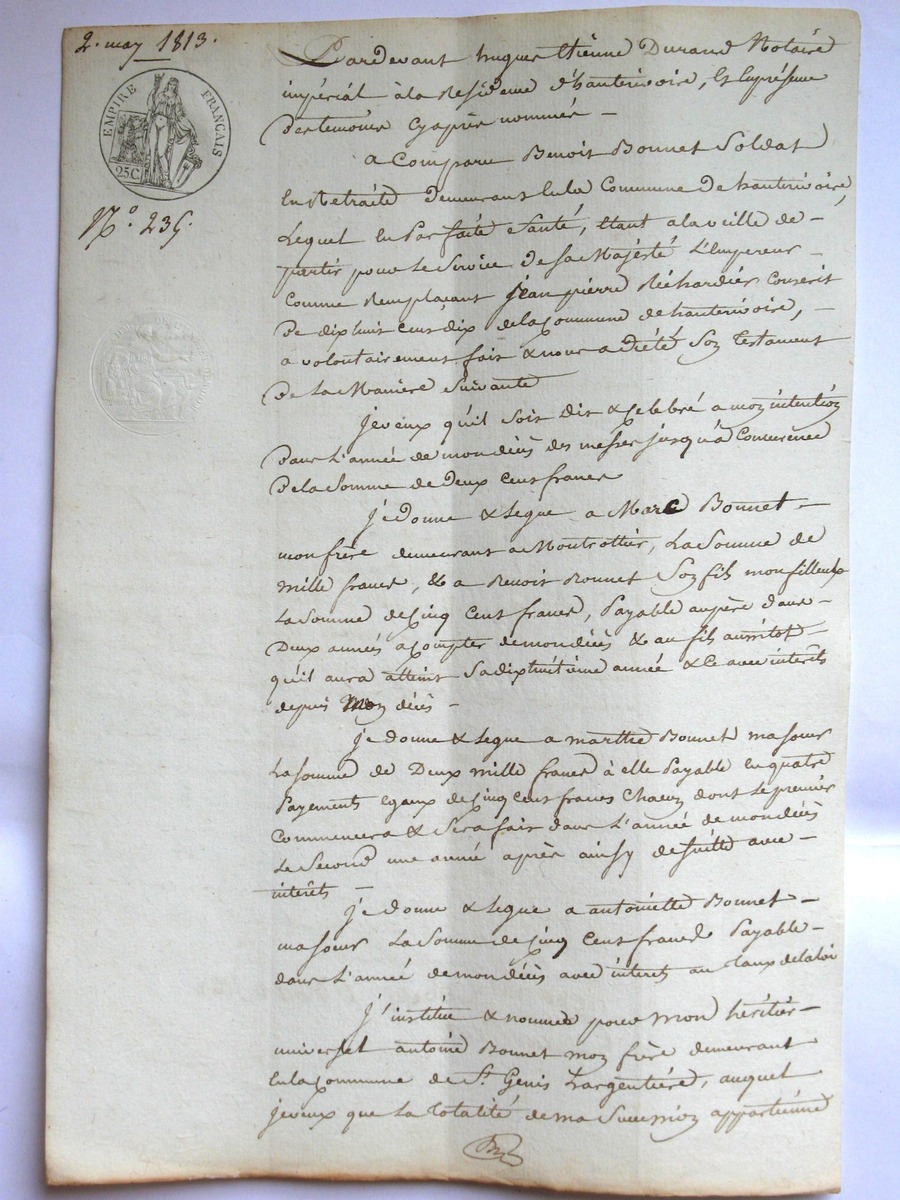 2. may 1813.
EMPIRE FRANÇAIS
25C
N.° 235.
Pardevant hugues Etienne Durand Notaire
impérial à la Residence d'hauterivoire, Et En présence
des temoins cy après nommés —
a Comparu Benoit Bonnet Soldat
En Retraité demeurant En la Commune De hauterivoire,
Lequel En Parfaite Santé, Etant a la veille de —
partir pour Le Service De Sa Majesté L'Empereur —
Comme Remplaçant jean pierre Conscrit
De dix huit cent dix de la Commune de hauterivoire, —
a volontairement fait & nous a Dicté Son Testament
De La Maniere Suivante
je veux qu'il Soit Dit & Celebré a mon intention
Dans L'année de mon décès des messes jusqu'a Concurrence
De la Somme de Deux Cent francs
je Donne & Legue a Marc Bonnet —
mon frère demeurant a Montrottier, La Somme de
Mille francs, & a Benoit Bonnet Son fils mon filleux
La Somme de Cinq Cent francs, Payable au père dans —
Deux années a Compter de mon décès & au fils aussitot —
qu'il aura atteint Sa dixhuitieme année & Ce avec intérêts
depuis Mon décès —
je donne & Legue a marthe Bonnet ma Soeur
La Somme de Deux mille francs à elle Payable En quatre
Payements Egaux de Cinq Cent francs Chacun dont Le premier
Commencera & Sera fait dans L'année de mon décès
Le Second une année après ainsy de Suitte avec —
intérêts —
je Donne & Legue a antoinette Bonnet —
ma Soeur La Somme de Cinq Cent francs Payable —
dans L'année de mon décès avec intérêts au Taux de la Loi
J'institue & nomme pour Mon héritier —
universel antoine Bonnet mon frère demeurant
En la Commune de St. Genis Largentière, auquel
je veux que La Totalité de ma Succession appartienne